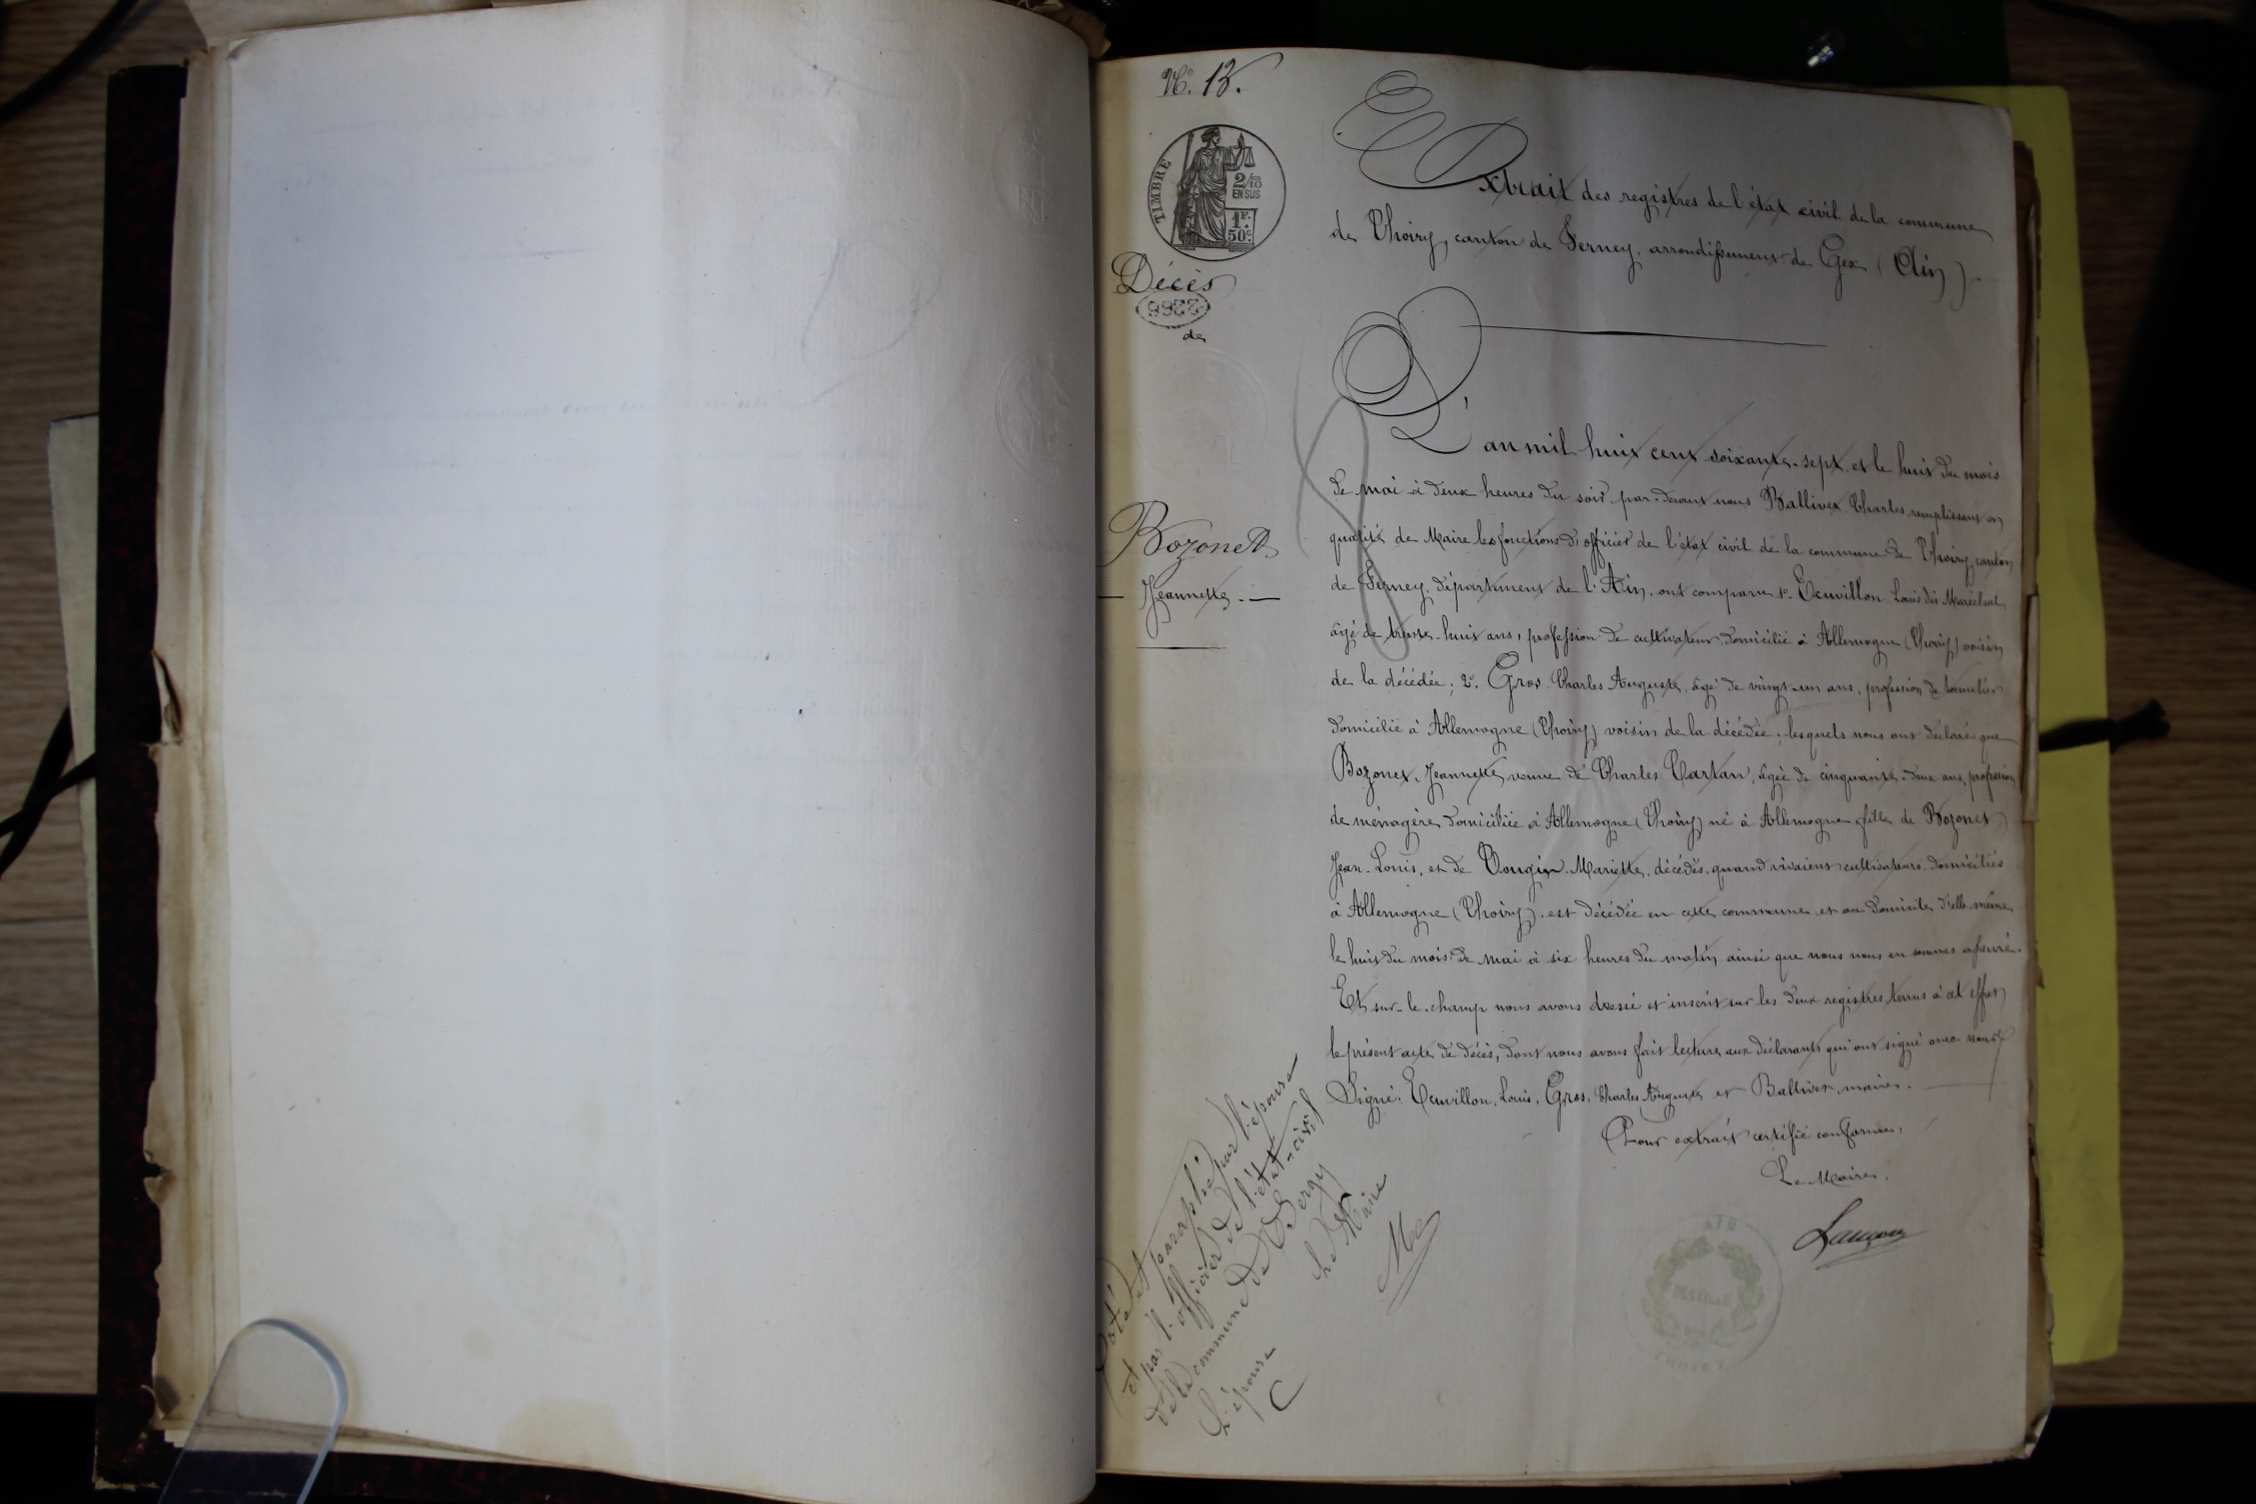 N° 13.
TIMBRE
2/10
EN SUS
1F.
50c.
Décès
2266
de
Bozonet
Jeannette
Extrait des registres de l'état civil de la commune
de Thoiry, canton de Ferney, arrondissement de Gex (Ain).
L'an mil huit cent soixante-sept et le huit du mois
de mai à deux heures du soir par-devant nous Ballivet Charles remplissant en
qualité de Maire les fonctions d'officier de l'état civil de la commune de Thoiry, canton
de Ferney, département de l'Ain, ont comparu 1° Louis dit Maréchal
âgé de trente-huit ans, profession de cultivateur, domicilié à Allemogne (Thoiry) voisin
de la décédée; 2° Gros Charles Auguste, âgé de vingt-un ans, profession de
domicilié à Allemogne (Thoiry) voisin de la décédée; lesquels nous ont déclaré que
Bozonet, Jeannette, veuve de Charles Cartan, âgée de cinquante-deux ans, profession
de ménagère, domiciliée à Allemogne (Thoiry) né à Allemogne, fille de Bozonet
Jean-Louis, et de Mariette, décédés, quand vivaient cultivateurs, domiciliés
à Allemogne (Thoiry), est décédée en cette commune et au domicile d'elle-même
le huit du mois de mai à six heures du matin, ainsi que nous nous en sommes assuré.
Et, sur-le-champ nous avons dressé et inscrit sur les deux registres tenus à cet effet
le présent acte de décès, dont nous avons fait lecture aux déclarants qui ont signé avec nous.
Signé: Louis, Gros, Charles Auguste et Ballivet, maire.
Pour extrait certifié conforme,
Le Maire,
Coté et paraphé par l'épouse
et par l'officier de l'état-civil
de la commune de Sergy
Le Maire
L'épouse
C